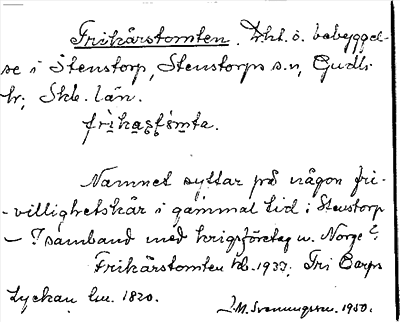 Frikårstomten. Trkt. o. bebyggel-
se i Stenstorp, Stenstorps sn, Gudh.
hr; Skb. län.
Namnet syftar på någon fri-
-villighetskår i gammal tid i Stenstorp
– ? samband med krigsföretag m. Norge?
Frikårstomten kb. 1933; Fri Carps
Lyckan hu. 1820.
M. Svenungsson. 1950.